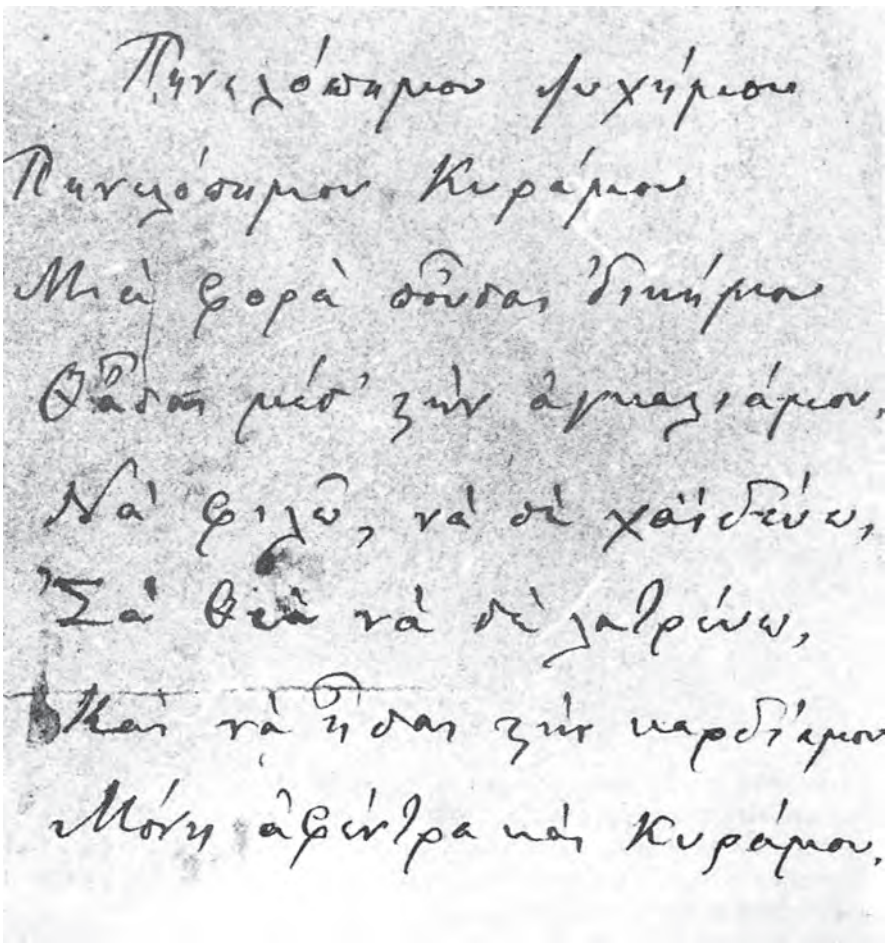 Πηνελόπημου ψυχήμου
Πηνελόπημου Κυράμου
Μιὰ φορὰ ποὖσαι ἐδικήμου
Θᾆσαι μέσ' ςὴν ἀγκαλιάμου,
Νὰ φιλῶ, νὰ σὲ χαϊδεύω,
Σὰ Θεὰ νὰ σὲ λατρεύω,
Καὶ νὰ ἦσαι ςὴν καρδιάμου
Μόνη ἀφέντρα καὶ Κυράμου.